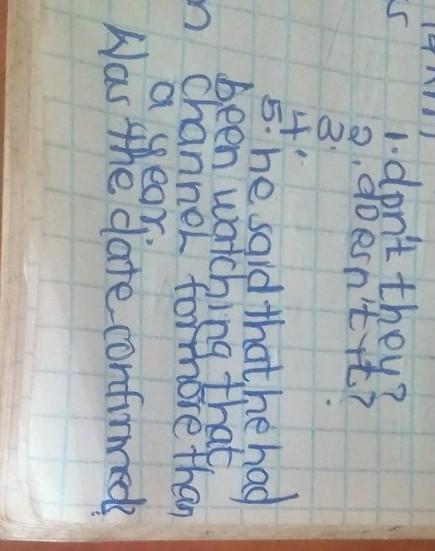 1. don't they?
2. doesn't it?
3.
4.
5. he said that he had
been watching that
channel for more than
a year.
Was the date confirmed?